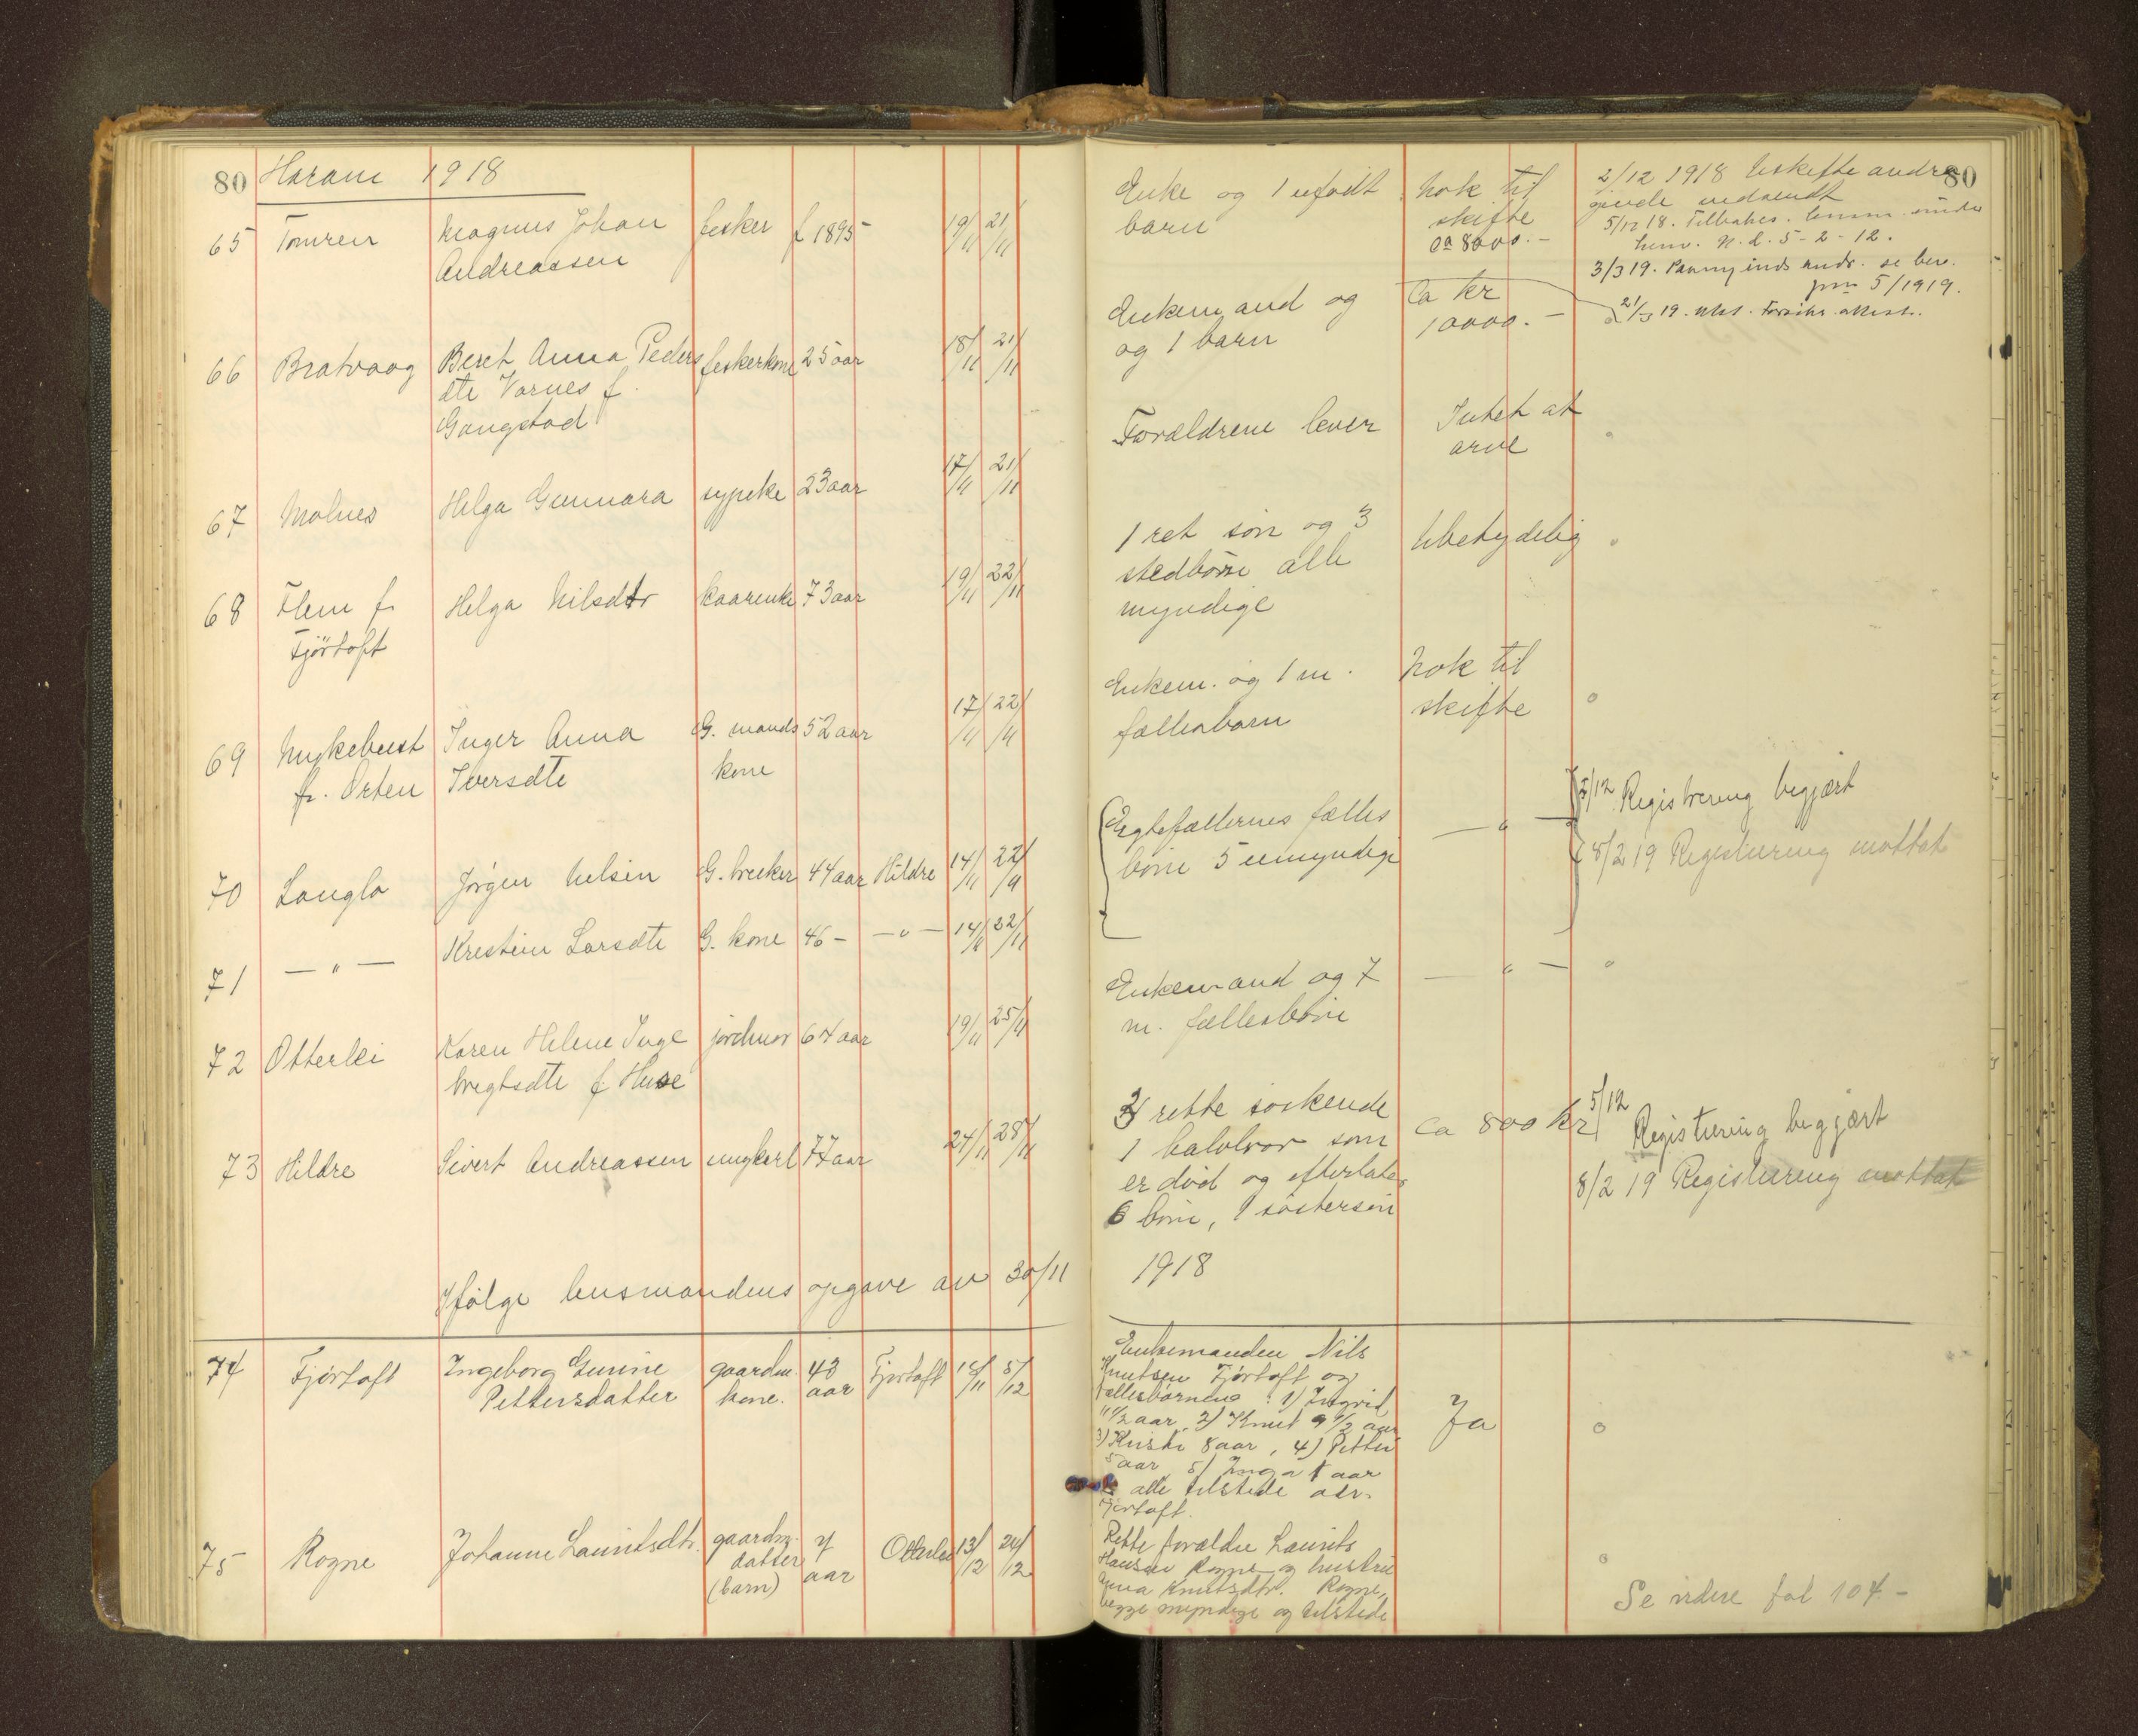 80 Haram 1918
65 Tomren Magnus Johan fisker f 1895 19/11 21/11
Andreassen
66 Bratvaag Beret Anna Peders fiskerkone 25 aar 18/11 21/11
dtr Varnes f.
Gangstad
67 Molnes Helga Gunnara sypike 23 aar 17/11 21/11
68 Flem f. Helga Nilsdtr kaarenke 73 aar 19/11 22/11
Fjörtoft
69 Myklebust Inger Anna G. mands 52 aar 17/11 22/11
fr. Orten Iversdtr kone
70 Longla Jørgen Nelsen G. bruker 44 aar Hildre 14/11 22/11
71 — " — Kristine Larsdtr G. kone 46 – — " — 14/11 22/11
72 Otterlei Karen Helene Inge jordmor 64 aar 19/11 25/11
bregtsdtr f. Huse
73 Hildre Sivert Andreassen ungkarl 77 aar 24/11 28/11
Ifølge lensmandens opgave av 30/11
74 Fjørtoft Ingeborg Gurine gaardm. 43 Fjørtoft 18/11 5/12
Pettersdatter kone. aar
75 Rogne Johanne Lauritsdtr. gaardm. 4 Otterlei 13/12 24/12
datter aar
(barn)
80
Enke og 1 ufødt nok til 2/12 1918 Uskifte andra
barn skifte givde
ca 8000.- 5/12 18. Tilbakes.
n. d. 5-2-12.
3/3 19. se bev.
5/1919.
Enkemand og Ca kr 21/3 19.
og 1 barn 10000.-
Forældrene lever Intet at
arve
1 ret søn og 3 Ubetydelig
stedbørn alle
myndige
Enkem. og 1 m. Nok til
fællesbarn skifte
Egtefællernes fælles — " — 5/12 Registrering begjært
børn 5 umyndige 8/2 19 Registrering mottat
Enkemand og 7 — " —
m. fællesbörn
3 rette söskende ca 800 kr 5/12 Registrering begjært
1 halvbror som
er död og efterlater 8/2 19 Registrering mottat
6 börn, 1 søstersön
1918
Enkemanden Nils
Knutsen Fjørtoft og
fællesbørnene: 1) Ingrid
11 1/2 aar, 2) Knut 9 1/2 aar Ja
3) Kristi 8 aar, 4) Petter
5 aar, 5) Inga 1 aar
alle tilstede adr.
Fjørtoft.
Rette forældre Laurits
Hansen Rogne og hustru
Anna Knutsdtr. Rogne,
begge myndige og tilstede
Se videre fol 104-